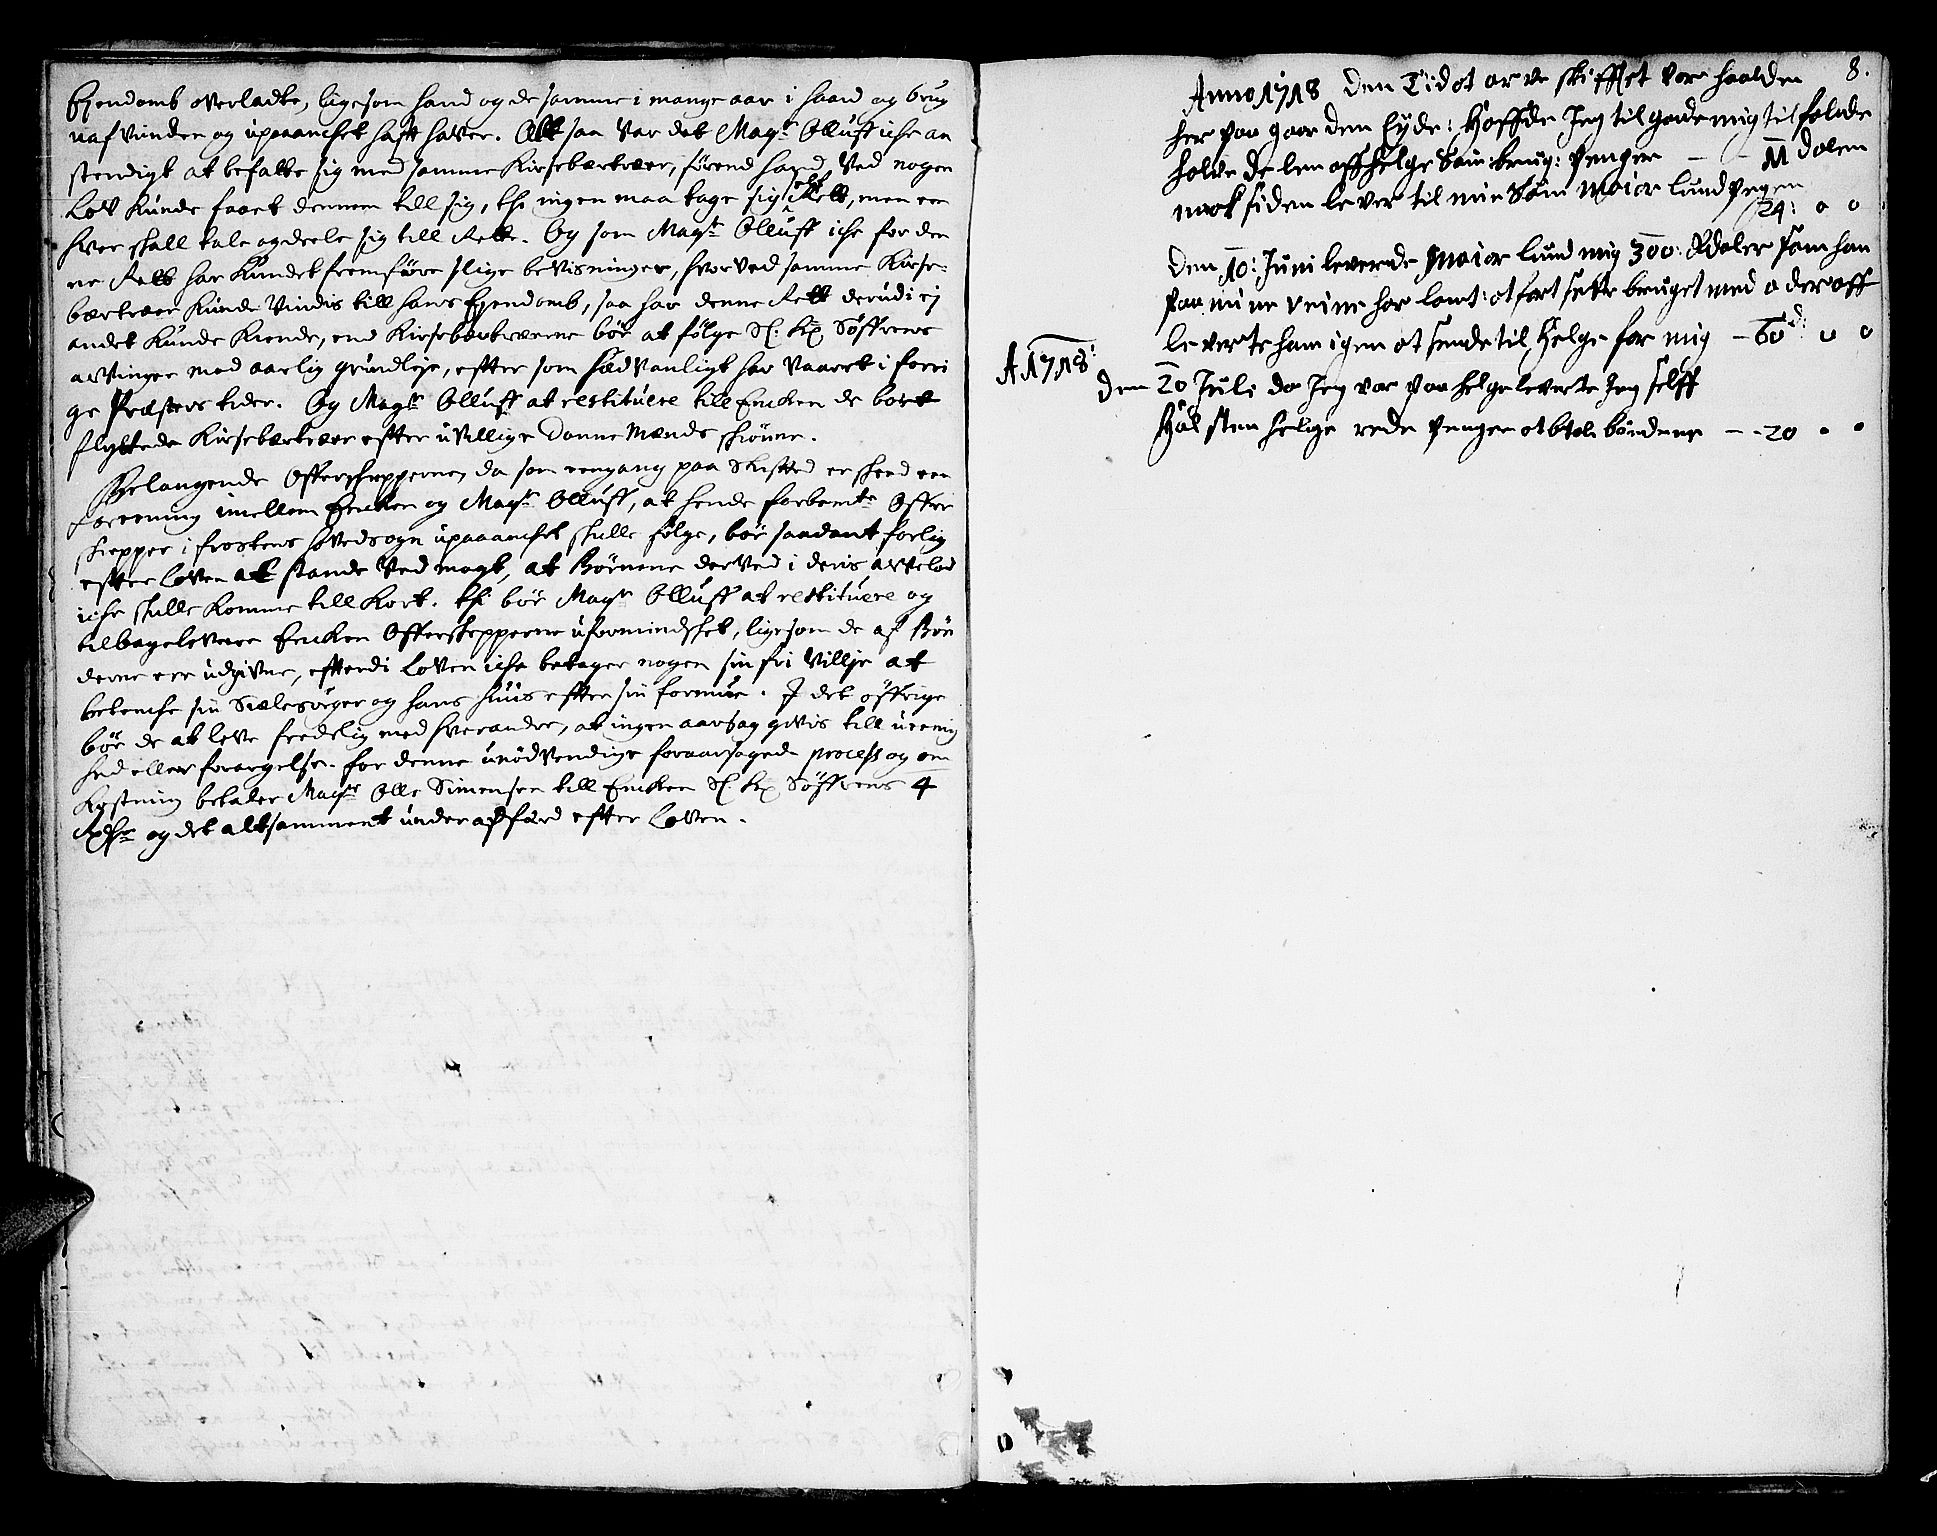 Ejendomb overladte, ligesom hand og de samme i mange aar i haand og brug
uafvunden og upaaancket hafft haver. Alt saa var det Magr Olluff icke an
stendigt at befatte sig med samme Kirsebærtræer, førend hand ved nogen
Lov kunde faaet dennem till sig, thi ingen maa tage sig self Rett, men een
hver skall tale og deele sig till Rette. Og som Magr Olluff icke for den
ne Rett har kundet fremføre slige bevisninger, hvorved samme Kirse-
bærtræer kunde vindis till hans Ejendomb, saa har denne Rett derudi ej
andet kunde kiende, end Kirsebærtræerne bør at følge Sl. Hr Søffrens
arvinger med aarlig grundleje, effter som sædvanligt har vaaret i forri
ge Præsters tider. Og Magr Olluff at restituere till Encken de bort
flyttede Kirsebærtræer effter uvillige Danne Mænds skiønne.
Belangende Offerskiepperne, da som eengang paa Skifted er skeed een
foreening imellem Encken og Magr Olluff, at hende forbemte Offer
skiepper i Frostens hovedsogn upaaancket skulle følge, bør saadant forlig
effter Loven at stande ved magt, at Børnene derved i deris arvelod
icke skulle komme till kort. thi bør Magr Olluff at restituere og
tilbagelevere Encken Offerskiepperne uformindsket, ligesom de af Bøn
derne ere udgivne, efterdi Loven icke betager nogen sin fri villje at
betencke sin Siælesørger og hans huus effter sin formue. I det øffrige
bør de at leve fredelig med hverandre, at ingen aarsag givis till ueenig
hed eller forargelse. for denne unødvendige foraarsagede process og om
kostning betaler Magr Olle Simensen till Encken Sl. Hr Søffrens 4
Rdlr og det altsamment under adfærd effter Loven.
8.
Anno 1718 den Tid at arve skifftet var haalden
her paa gaarden Eyde: Haffde Jeg til gode mig til falde
halve delen aff helge Sau brug: penger — — M dalen
nock siden lever til min Søn Maior Lund pegen
124: 0 0
den 10: Juni leverde Maior lund mig 300: Rdaler som han
paa mine veine har lant: at fort sette bruget med a der aff
leverte ham igen at sende til Helge for mig — 60d: 0 0
A 1718:
den 20 Juli da Jeg var paa helge leverte Jeg selff
Hal sten helge rede penger at btale bøndene — — 20 " "